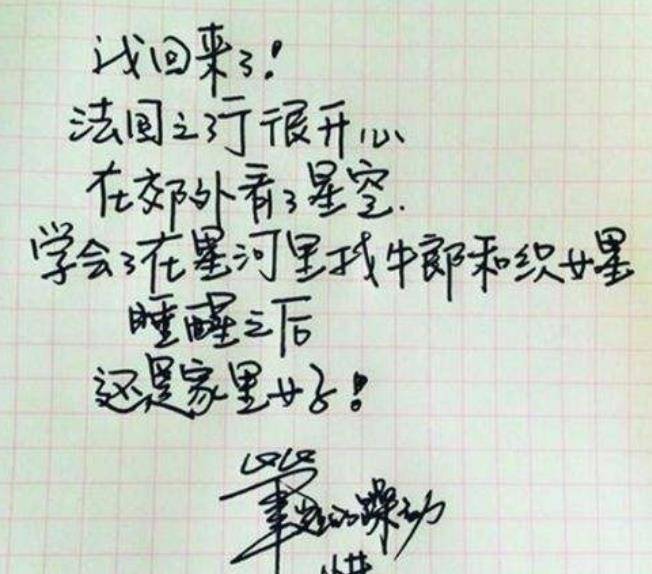 我回来了!
法国之行很开心
在郊外看了星空.
学会了在星河里找牛郎和织女星
睡醒之后
还是家里好!
笔迹的躁动